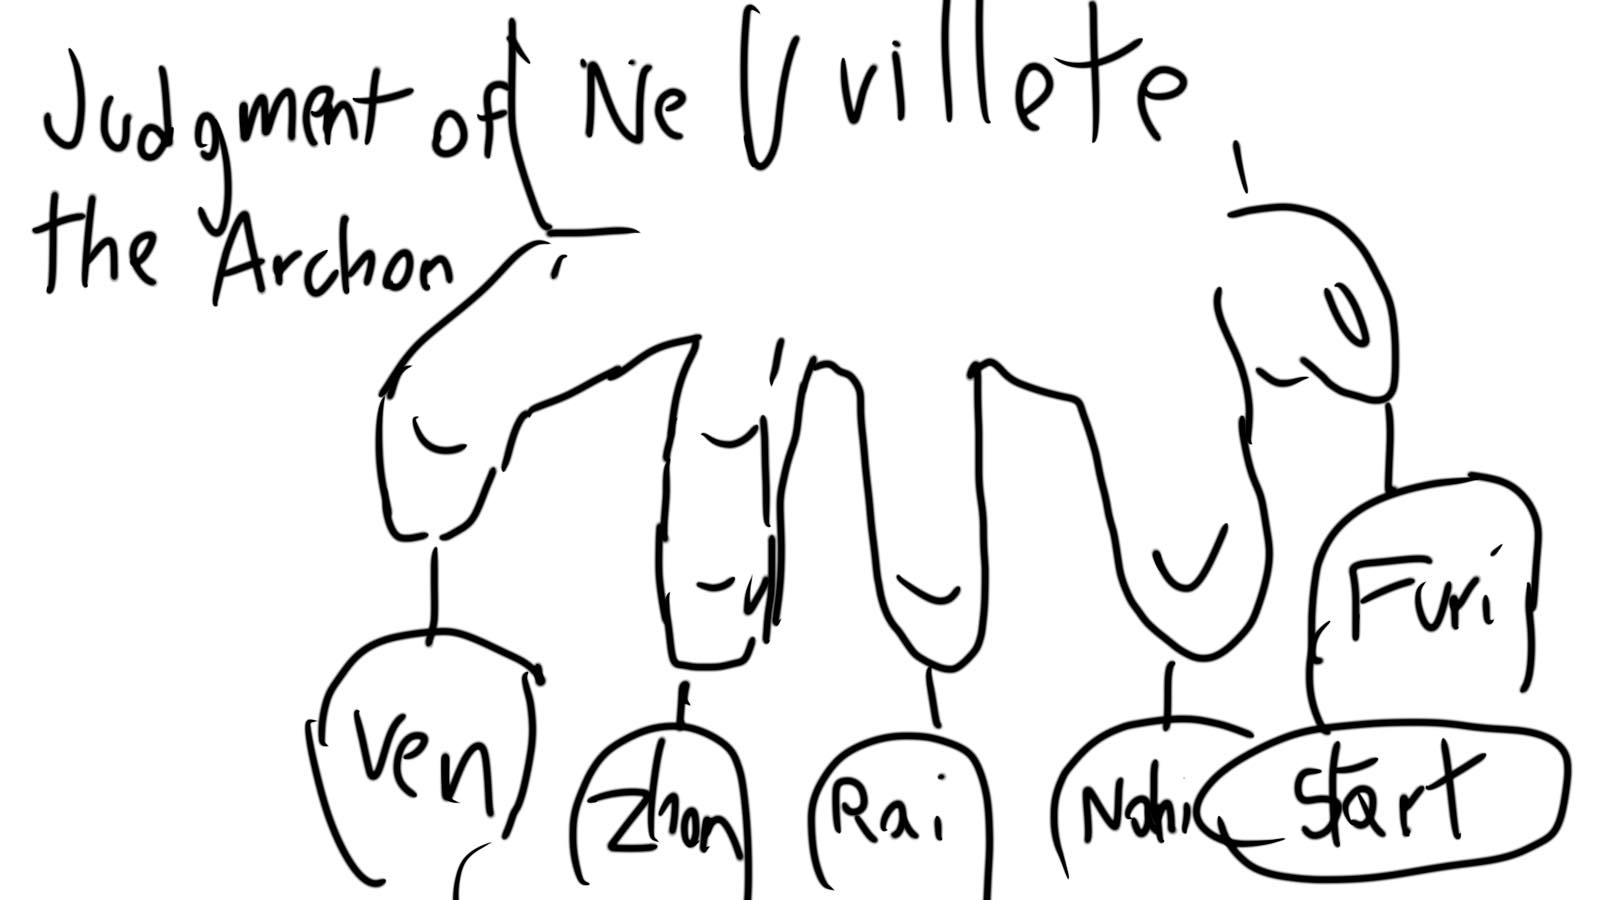 Judgment of
the Archon
NeUvillete
Ven
Zhon
Rai
Nahi
Furi
Start